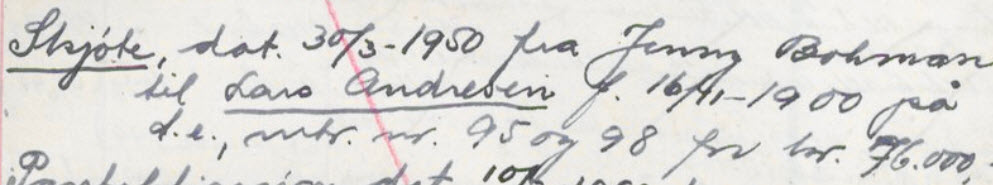 Skjöte, dat. 30/3-1950 fra Jenny Bohman
til Lars Andresen f. 16/11-1900 på
d.e., mtr. nr. 95 og 98 for kr. 76.000,-
dat. 10/